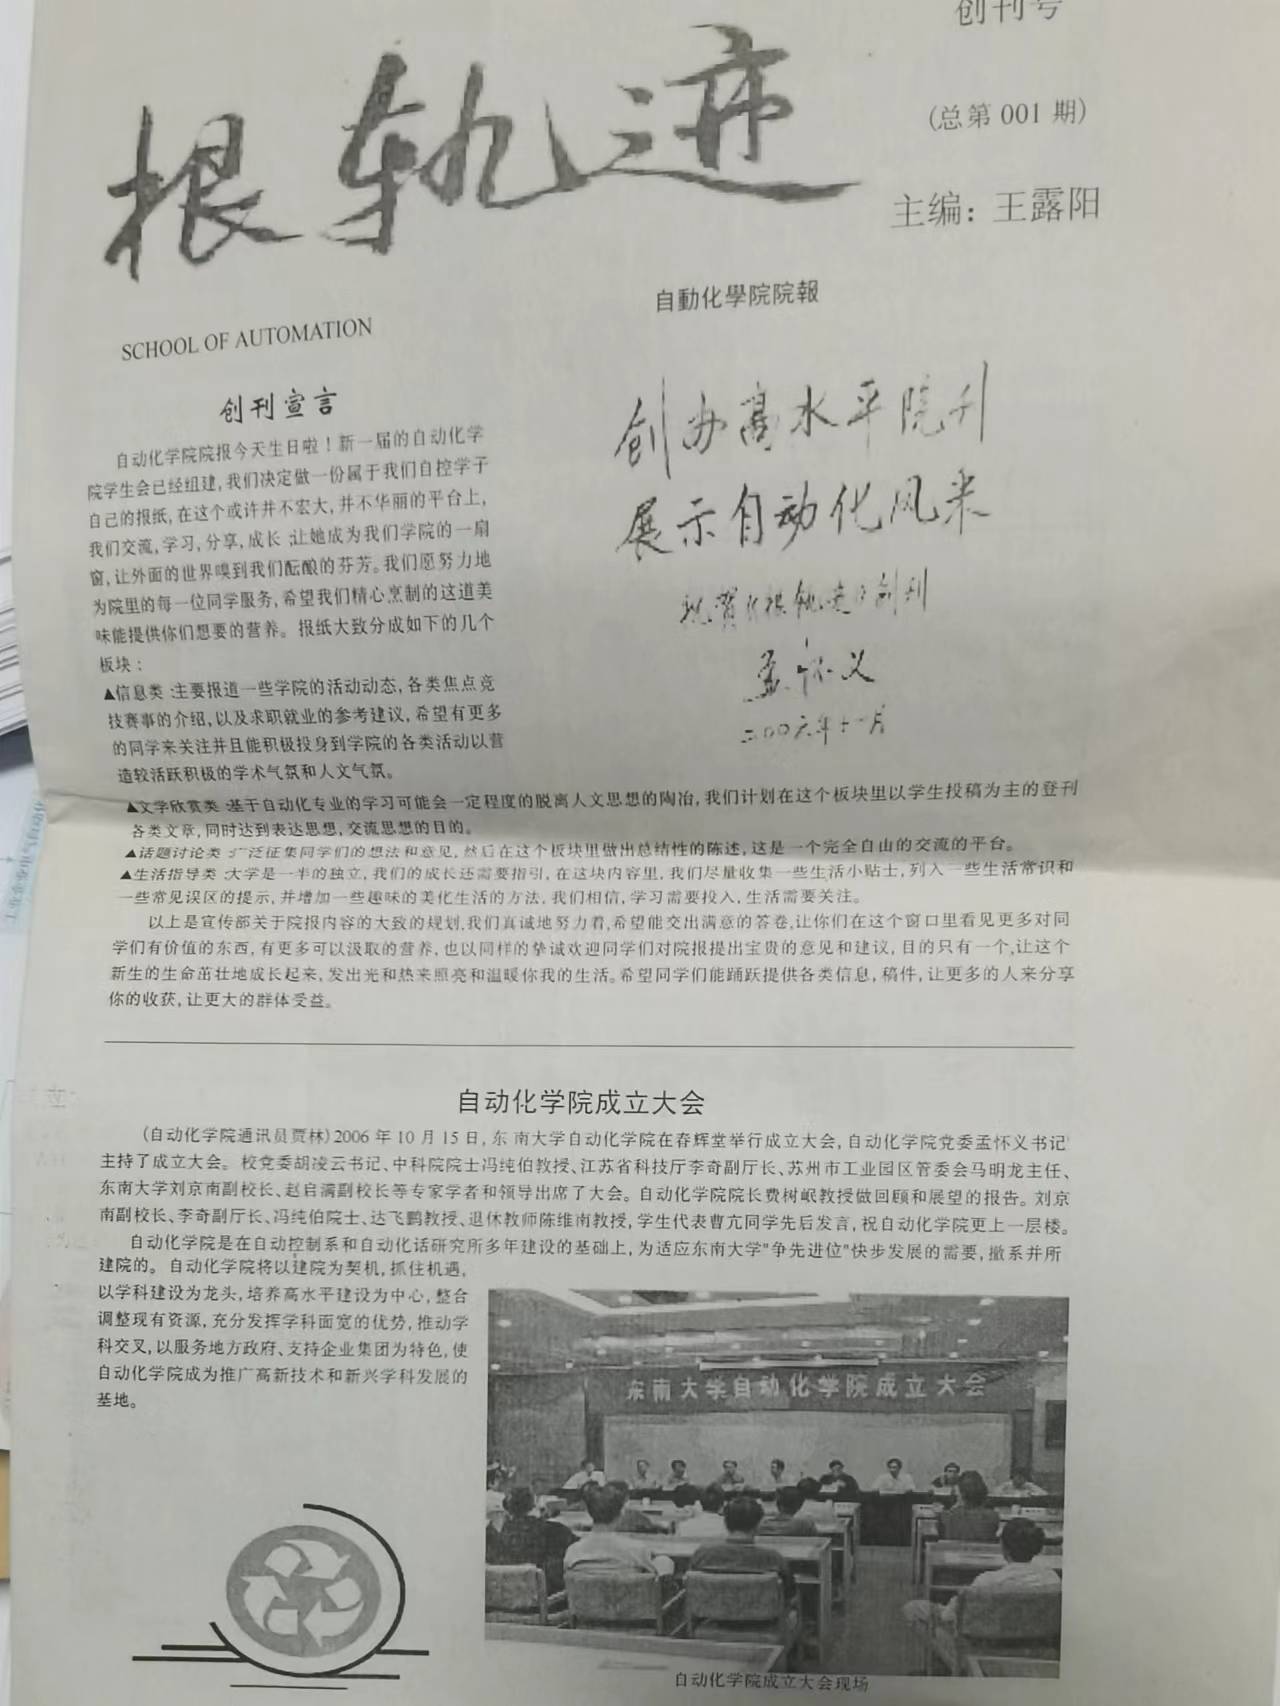 创刊号
(总第 001 期)
主编：王露阳
根轨迹
自動化學院院報
SCHOOL OF AUTOMATION
创刊宣言
自动化学院院报今天生日啦！新一届的自动化学
院学生会已经组建，我们决定做一份属于我们自控学子
自己的报纸，在这个或许并不宏大，并不华丽的平台上，
我们交流，学习，分享，成长；让她成为我们学院的一扇
窗，让外面的世界嗅到我们酝酿的芬芳。我们愿努力地
为院里的每一位同学服务，希望我们精心烹制的这道美
味能提供你们想要的营养。报纸大致分成如下的几个
板块：
▲信息类：主要报道一些学院的活动动态，各类焦点竞
技赛事的介绍，以及求职就业的参考建议，希望有更多
的同学来关注并且能积极投身到学院的各类活动以营
造较活跃积极的学术气氛和人文气氛。
创办高水平院刊
展示自动化风采
祝贺《根轨迹》创刊
孟怀义
二00六年十一月
▲文学欣赏类：基于自动化专业的学习可能会一定程度的脱离人文思想的陶冶，我们计划在这个板块里以学生投稿为主的登刊
各类文章，同时达到表达思想，交流思想的目的。
▲话题讨论类：广泛征集同学们的想法和意见，然后在这个板块里做出总结性的陈述，这是一个完全自由的交流的平台。
▲生活指导类：大学是一半的独立，我们的成长还需要指引，在这块内容里，我们尽量收集一些生活小贴士，列入一些生活常识和
一些常见误区的提示，并增加一些趣味的美化生活的方法，我们相信，学习需要投入，生活需要关注。
以上是宣传部关于院报内容的大致的规划，我们真诚地努力着，希望能交出满意的答卷，让你们在这个窗口里看见更多对同
学们有价值的东西，有更多可以汲取的营养，也以同样的挚诚欢迎同学们对院报提出宝贵的意见和建议，目的只有一个，让这个
新生的生命茁壮地成长起来，发出光和热来照亮和温暖你我的生活。希望同学们能踊跃提供各类信息，稿件，让更多的人来分享
你的收获，让更大的群体受益。
自动化学院成立大会
(自动化学院通讯员贾林)2006 年 10 月 15 日，东南大学自动化学院在春辉堂举行成立大会，自动化学院党委孟怀义书记
主持了成立大会。校党委胡凌云书记、中科院院士冯纯伯教授、江苏省科技厅李奇副厅长、苏州市工业园区管委会马明龙主任、
东南大学刘京南副校长、赵启满副校长等专家学者和领导出席了大会。自动化学院院长费树岷教授做回顾和展望的报告。刘京
南副校长、李奇副厅长、冯纯伯院士、达飞鹏教授、退休教师陈维南教授，学生代表曹亢同学先后发言，祝自动化学院更上一层楼。
自动化学院是在自动控制系和自动化话研究所多年建设的基础上，为适应东南大学"争先进位"快步发展的需要，撤系并所
建院的。自动化学院将以建院为契机，抓住机遇，
以学科建设为龙头，培养高水平建设为中心，整合
调整现有资源，充分发挥学科面宽的优势，推动学
科交叉，以服务地方政府、支持企业集团为特色，使
自动化学院成为推广高新技术和新兴学科发展的
基地。
东南大学自动化学院成立大会
自动化学院成立大会现场